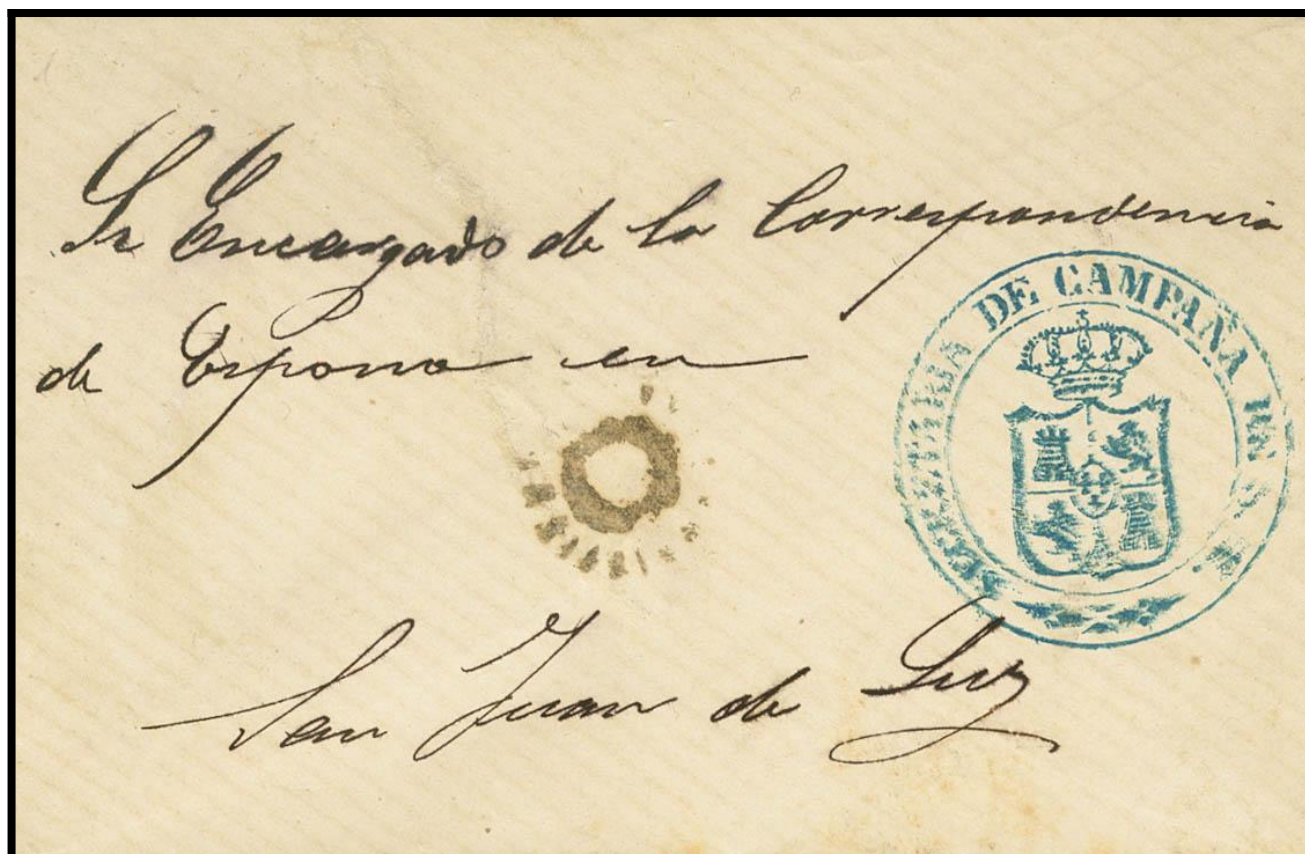 Sr Encargado de la Correspondencia
de España en
SECRETARIA DE CAMPAÑA DE S. M.
San Juan de Luz